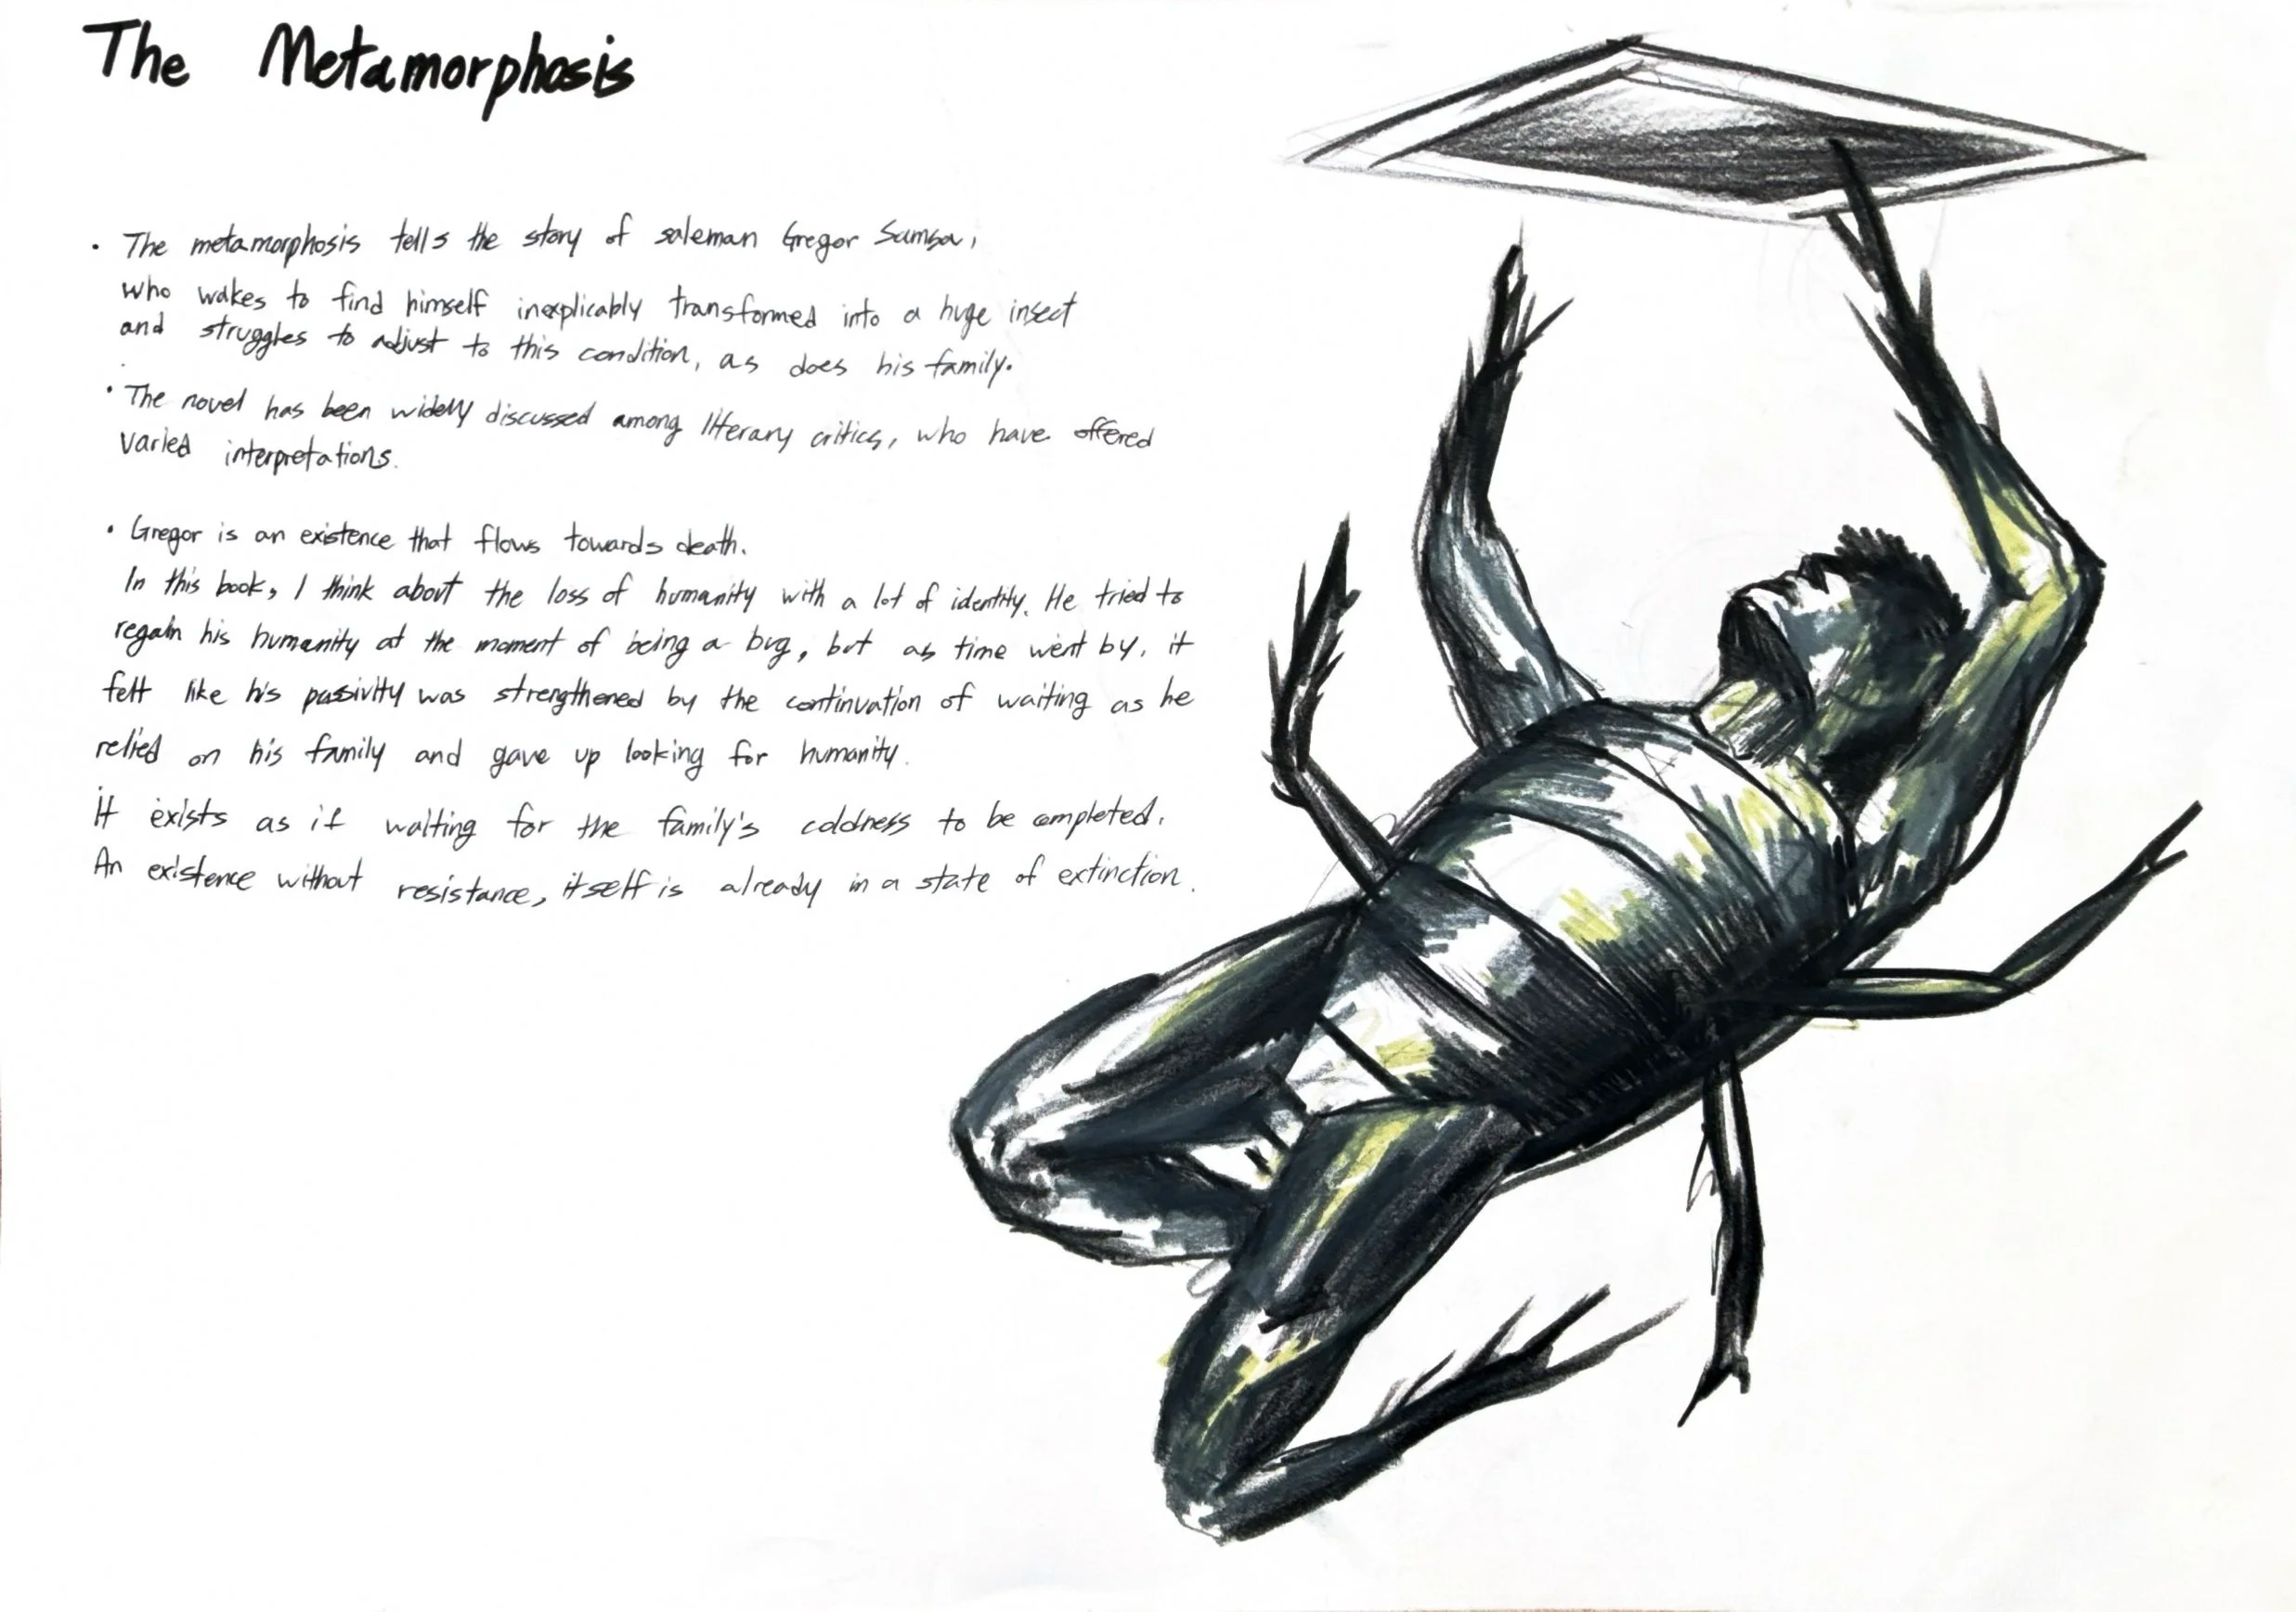 The Metamorphosis
• The metamorphosis tells the story of saleman Gregor Samsa,
who wakes to find himself inexplicably transformed into a huge insect
and struggles to adjust to this condition, as does his family.
• The novel has been widely discussed among literary critics, who have offered
varied interpretations.
• Gregor is an existence that flows towards death.
In this book, I think about the loss of humanity with a lot of identity. He tried to
regain his humanity at the moment of being a bug, but as time went by, it
felt like his passivity was strengthened by the continuation of waiting as he
relied on his family and gave up looking for humanity.
it exists as if waiting for the family's coldness to be completed.
An existence without resistance, itself is already in a state of extinction.